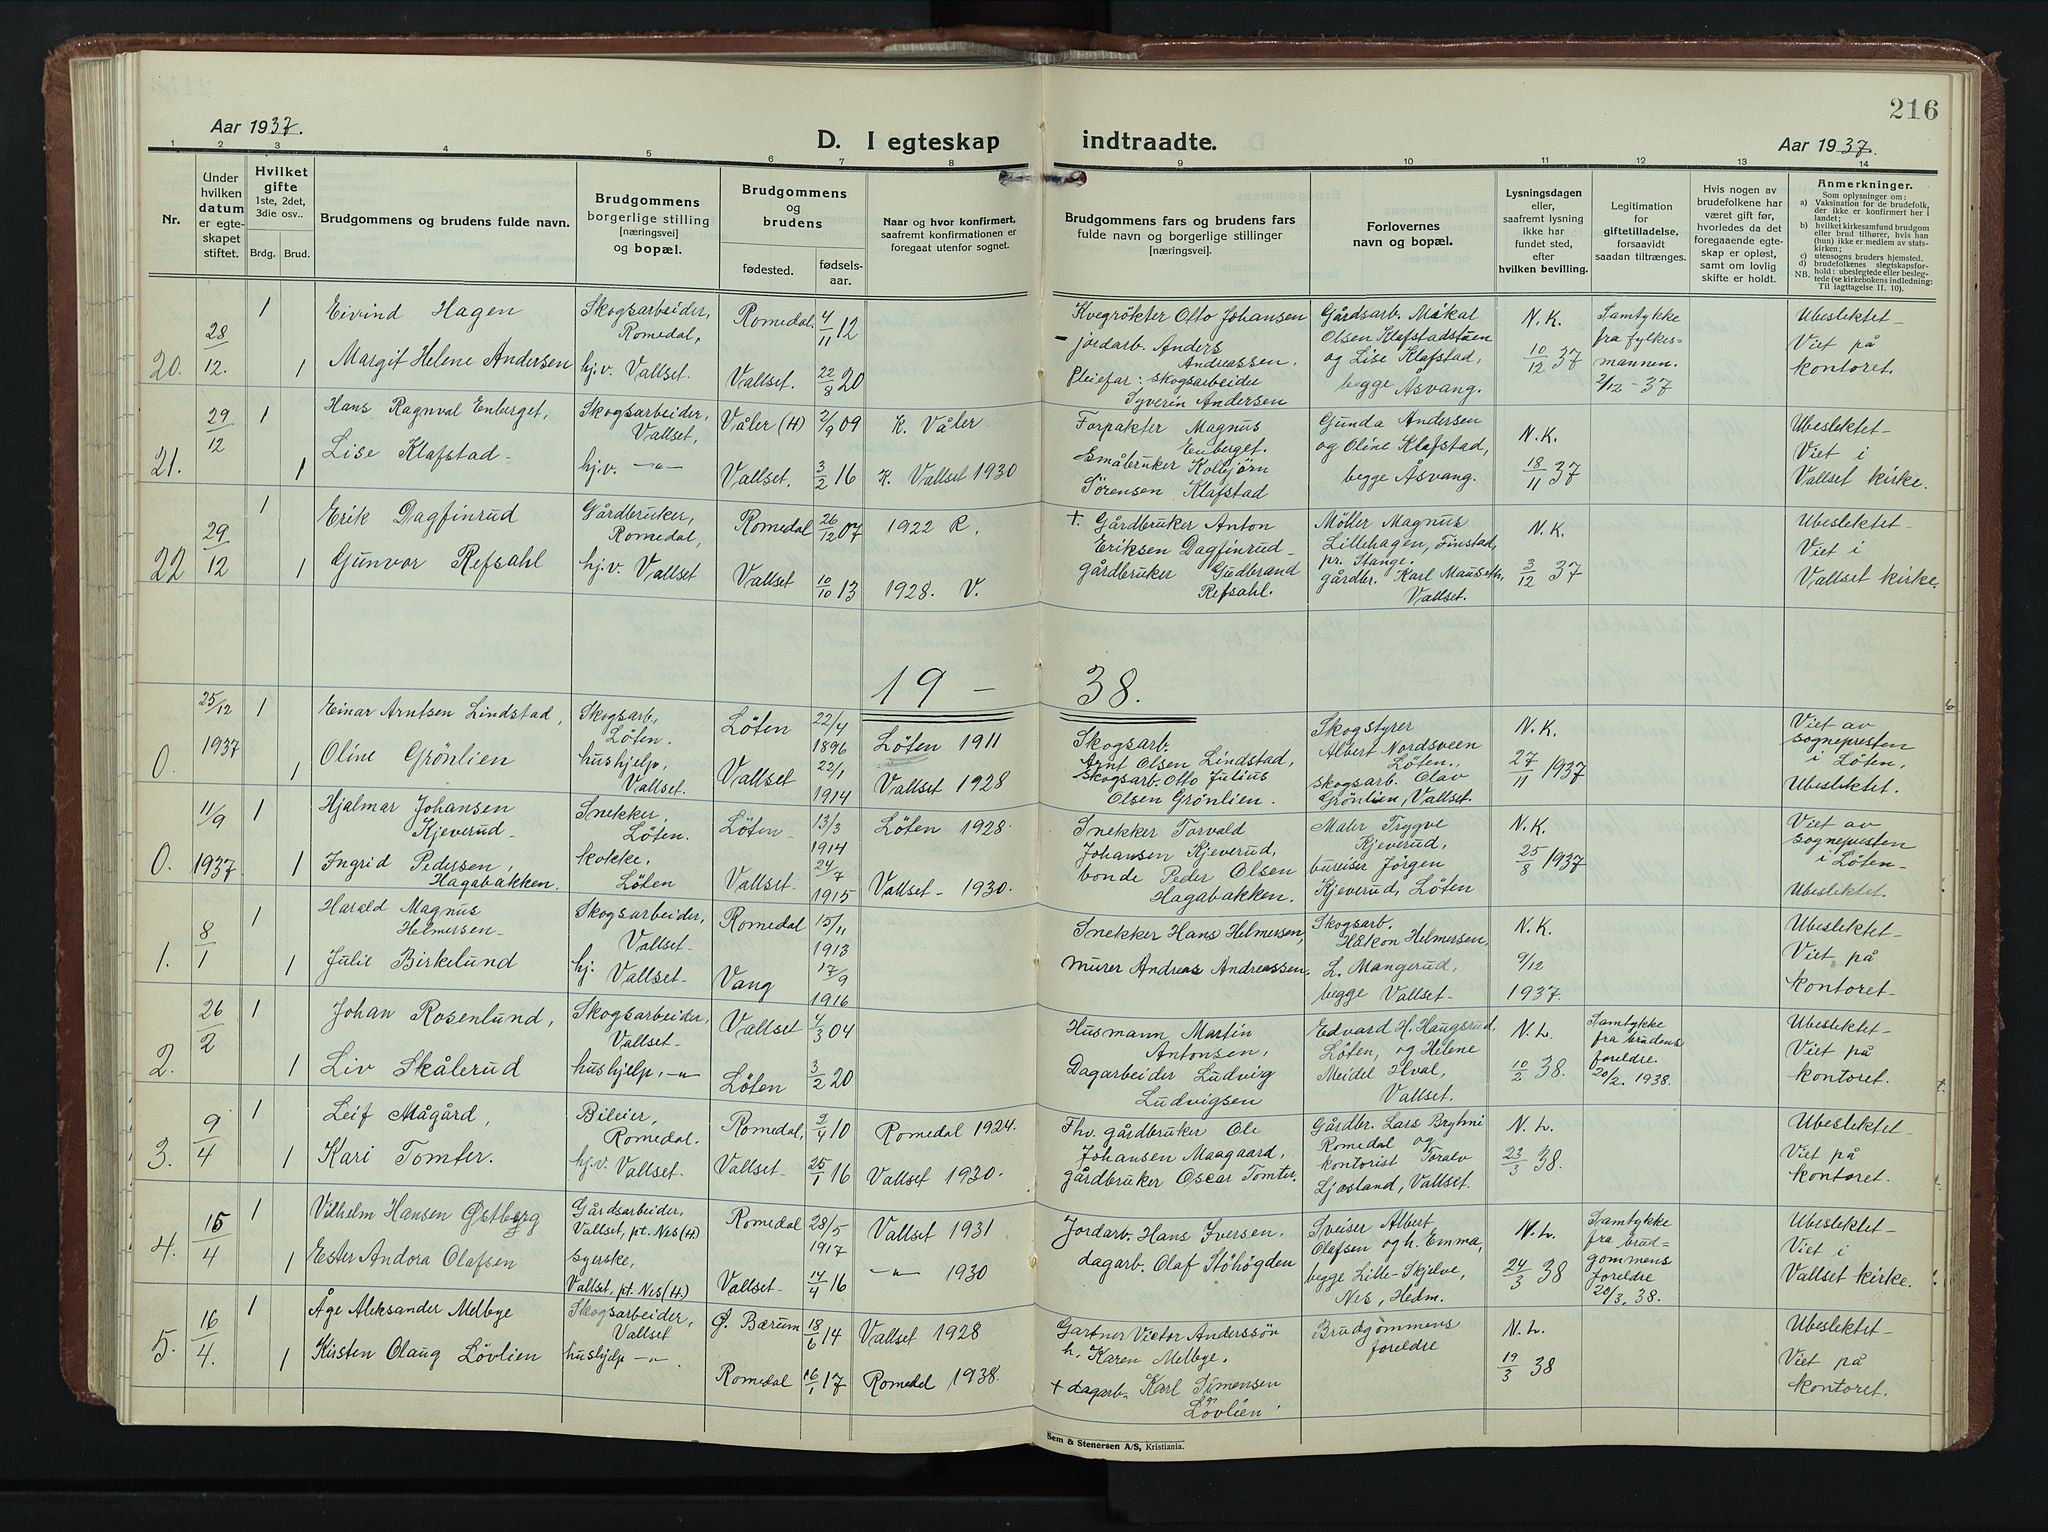 216
Aar 1937.
D. I egteskap indtraadte.
Aar 1937.
1 2 3 4 5 6 7 8 9 10 11 12 13 14
Nr.
Under hvilken datum er egteskapet stiftet.
Hvilket gifte 1ste, 2det, 3die osv..
Brdg. Brud.
Brudgommens og brudens fulde navn.
Brudgommens borgerlige stilling [næringsvei] og bopæl.
Brudgommens og brudens
fødested. fødsels-aar.
Naar og hvor konfirmert, saafremt konfirmationen er foregaat utenfor sognet.
Brudgommens fars og brudens fars fulde navn og borgerlige stillinger [næringsvei]
Forlovernes navn og bopæl.
Lysningsdagen eller, saafremt lysning ikke har fundet sted, efter hvilken bevilling.
Legitimation for giftetilladelse, forsaavidt saadan tiltrænges.
Hvis nogen av brudefolkene har været gift før, hvorledes da det foregaaende egteskap er opløst, samt om lovlig skifte er holdt.
Anmerkninger.
Som oplysninger om:
a) Vaksination for de brudefolk, der ikke er konfirmert her i landet;
b) hvilket kirkesamfund brudgom eller brud tilhører, hvis han (hun) ikke er medlem av statskirken;
c) utensogns bruders hjemsted.
d) brudefolkenes slegtskapsforhold: ubeslegtede eller beslegtede (se kirkebokens indledning: Til iagttagelse II. 10).
NB.
20. 28/12. 1 Eivind Hagen Skogsarbeider, Romedal, Romedal. 4/11 12 Kvegrøkter Otto Johansen Gårdsarb. Mikal N.K. Samtykke Ubeslektet-
1 Margit Helene Andersen hj.v. Vallset. Vallset. 22/8 20 - jordarb. Anders Andreassen. Olsen Klafstadstuen og Lise Klafstad, 10/12 37 fra fylkesmannen. Viet på
Pleiefar: skogsarbeider Syverin Andersen begge Åsvang. 2/12 - 37 kontoret.
21. 29/12 1 Hans Ragnval Enberget, Skogsarbeider, Vallset, Våler (H) 2/9 09 K. Våler Forpakter Magnus Enberget. Gunda Andersen N.K. Ubeslektet-
1 Lise Klafstad- hj.v. -"- Vallset. 3/2 16 K. Vallset 1930 Småbruker Kolbjørn Sørensen Klafstad og Oline Klafstad, begge Åsvang. 18/11 37 Viet i Vallset kirke.
22 29/12 1 Erik Dagfinrud Gårdbruker, Romedal, Romedal 26/12 07 1922 R. + Gårdbruker Anton Eriksen Dagfinrud- Møller Magnus Lillehagen, Finstad, pr. Stange. N.K. Ubeslektet-
1 Gunvor Refsahl hj.v. Vallset Vallset 10/10 13 1928. V. gårdbruker Gudbrand Refsahl. gårdbr. Karl Mauseth, Vallset. 3/12 37 Viet i Vallset kirke.
19 - 38.
0. 25/12 1937 1 Einar Arntsen Lindstad, Skogsarb, Løten. Løten 22/4 1896 Løten 1911 Skogsarb. Arnt Olsen Lindstad, Skogstyrer Albert Nordsveen Løten., N.K. Viet av sognepresten i Løten,
1 Oline Grönlien hushjelp, Vallset. Vallset 22/1 1914 Vallset 1928 skogsarb. Otto Julius Olsen Grönlien. skogsarb. Olav Grönlien, Vallset. 27/11 1937 Ubeslektet.
0. 11/9 1937 1 Hjalmar Johansen Kjeverud- Snekker, Løten. Løten- 13/3 1914 Løten 1928. Snekker Torvald Johansen Kjeverud, Maler Trygve Kjeverud, N.K. Viet av sognepresten i Løten-
1 Ingrid Pedersen, Hagabakken. kokke, Løten Vallset- 24/7 1915 Vallset- 1930. bonde Peder Olsen Hagabakken. bureiser Jörgen Kjeverud, Löten 25/8 1937 Ubeslektet.
1. 8/1 1 Harald Magnus Helmersen- Skogsarbeider, Vallset- Romedal 15/11 1913 Snekker Hans Helmersen, Skogsarb. Håkon Helmersen, N.K. Ubeslektet-
1 Julie Birkelund hj. Vallset- Vang 17/9 1916 murer Andreas Andreassen. L. Mangerud, begge Vallset- 9/12 1937. Viet på kontoret-
2. 26/2 1 Johan Rosenlund, Skogsarbeider, Vallset- Vallset 4/3 04 Husmann Martin Antonsen, Edvard H. Haugsrud, Løten, og Helene N.L. Samtykke fra brudens Ubeslektet-
1 Liv Skålerud hushjelp, -"- Løten 3/2 20 Dagarbeider Ludvig Ludvigsen Meidel Hval, Vallset. 10/2 38. foreldre. 20/2. 1938. Viet på kontoret.
3. 9/4 1 Leif Mågård, Bileier, Romedal. Romedal, 9/4 10 Romedal 1924. Fhv. gårdbruker Ole Johansen Maagaard, Gårdbr. Lars Bryhni Romedal og N.L. Ubeslektet-
1 Kari Tomter. hj.v. Vallset. Vallset- 25/1 16 Vallset 1930. gårdbruker Oscar Tomter. kontorist Toralv Ljøsland, Vallset. 23/3 38. Viet på kontoret.
4. 15/4 1 Vilhelm Hansen Østberg Gårdsarbeider, Vallset, pt. Nes (H) Romedal 28/5 1917 Vallset 1931 Jordarb. Hans Iversen. Sveiser Albert Olafsen og h. Emma, N.L. Samtykke fra brudgommens Ubeslektet-
1 Ester Andora Olafsen syerske, Vallset, pt. Nes (H.) Vallset. 14/4 16 -"- 1930 dagarb. Olaf Støhøgden begge Lille-Skjelve, Nes, Hedm. 24/3 38 foreldre 20/3. 38. Viet i Vallset kirke.
5. 16/4. 1 Åge Aleksander Melbye Skogsarbeider, Vallset Ø. Bærum 18/6 14 Vallset 1928 Gartner Victor Anderssön h. Karen Melbye. Brudgommens foreldre N.L. Ubeslektet-
1 Kirsten Olaug Lövlien hushjelp -"-. Romedal 16/1 17 Romedal 1938. + dagarb. Karl Simensen Lövlien. 19/3 38 Viet på kontoret.
Sem & Stenersen A/S, Kristiania.